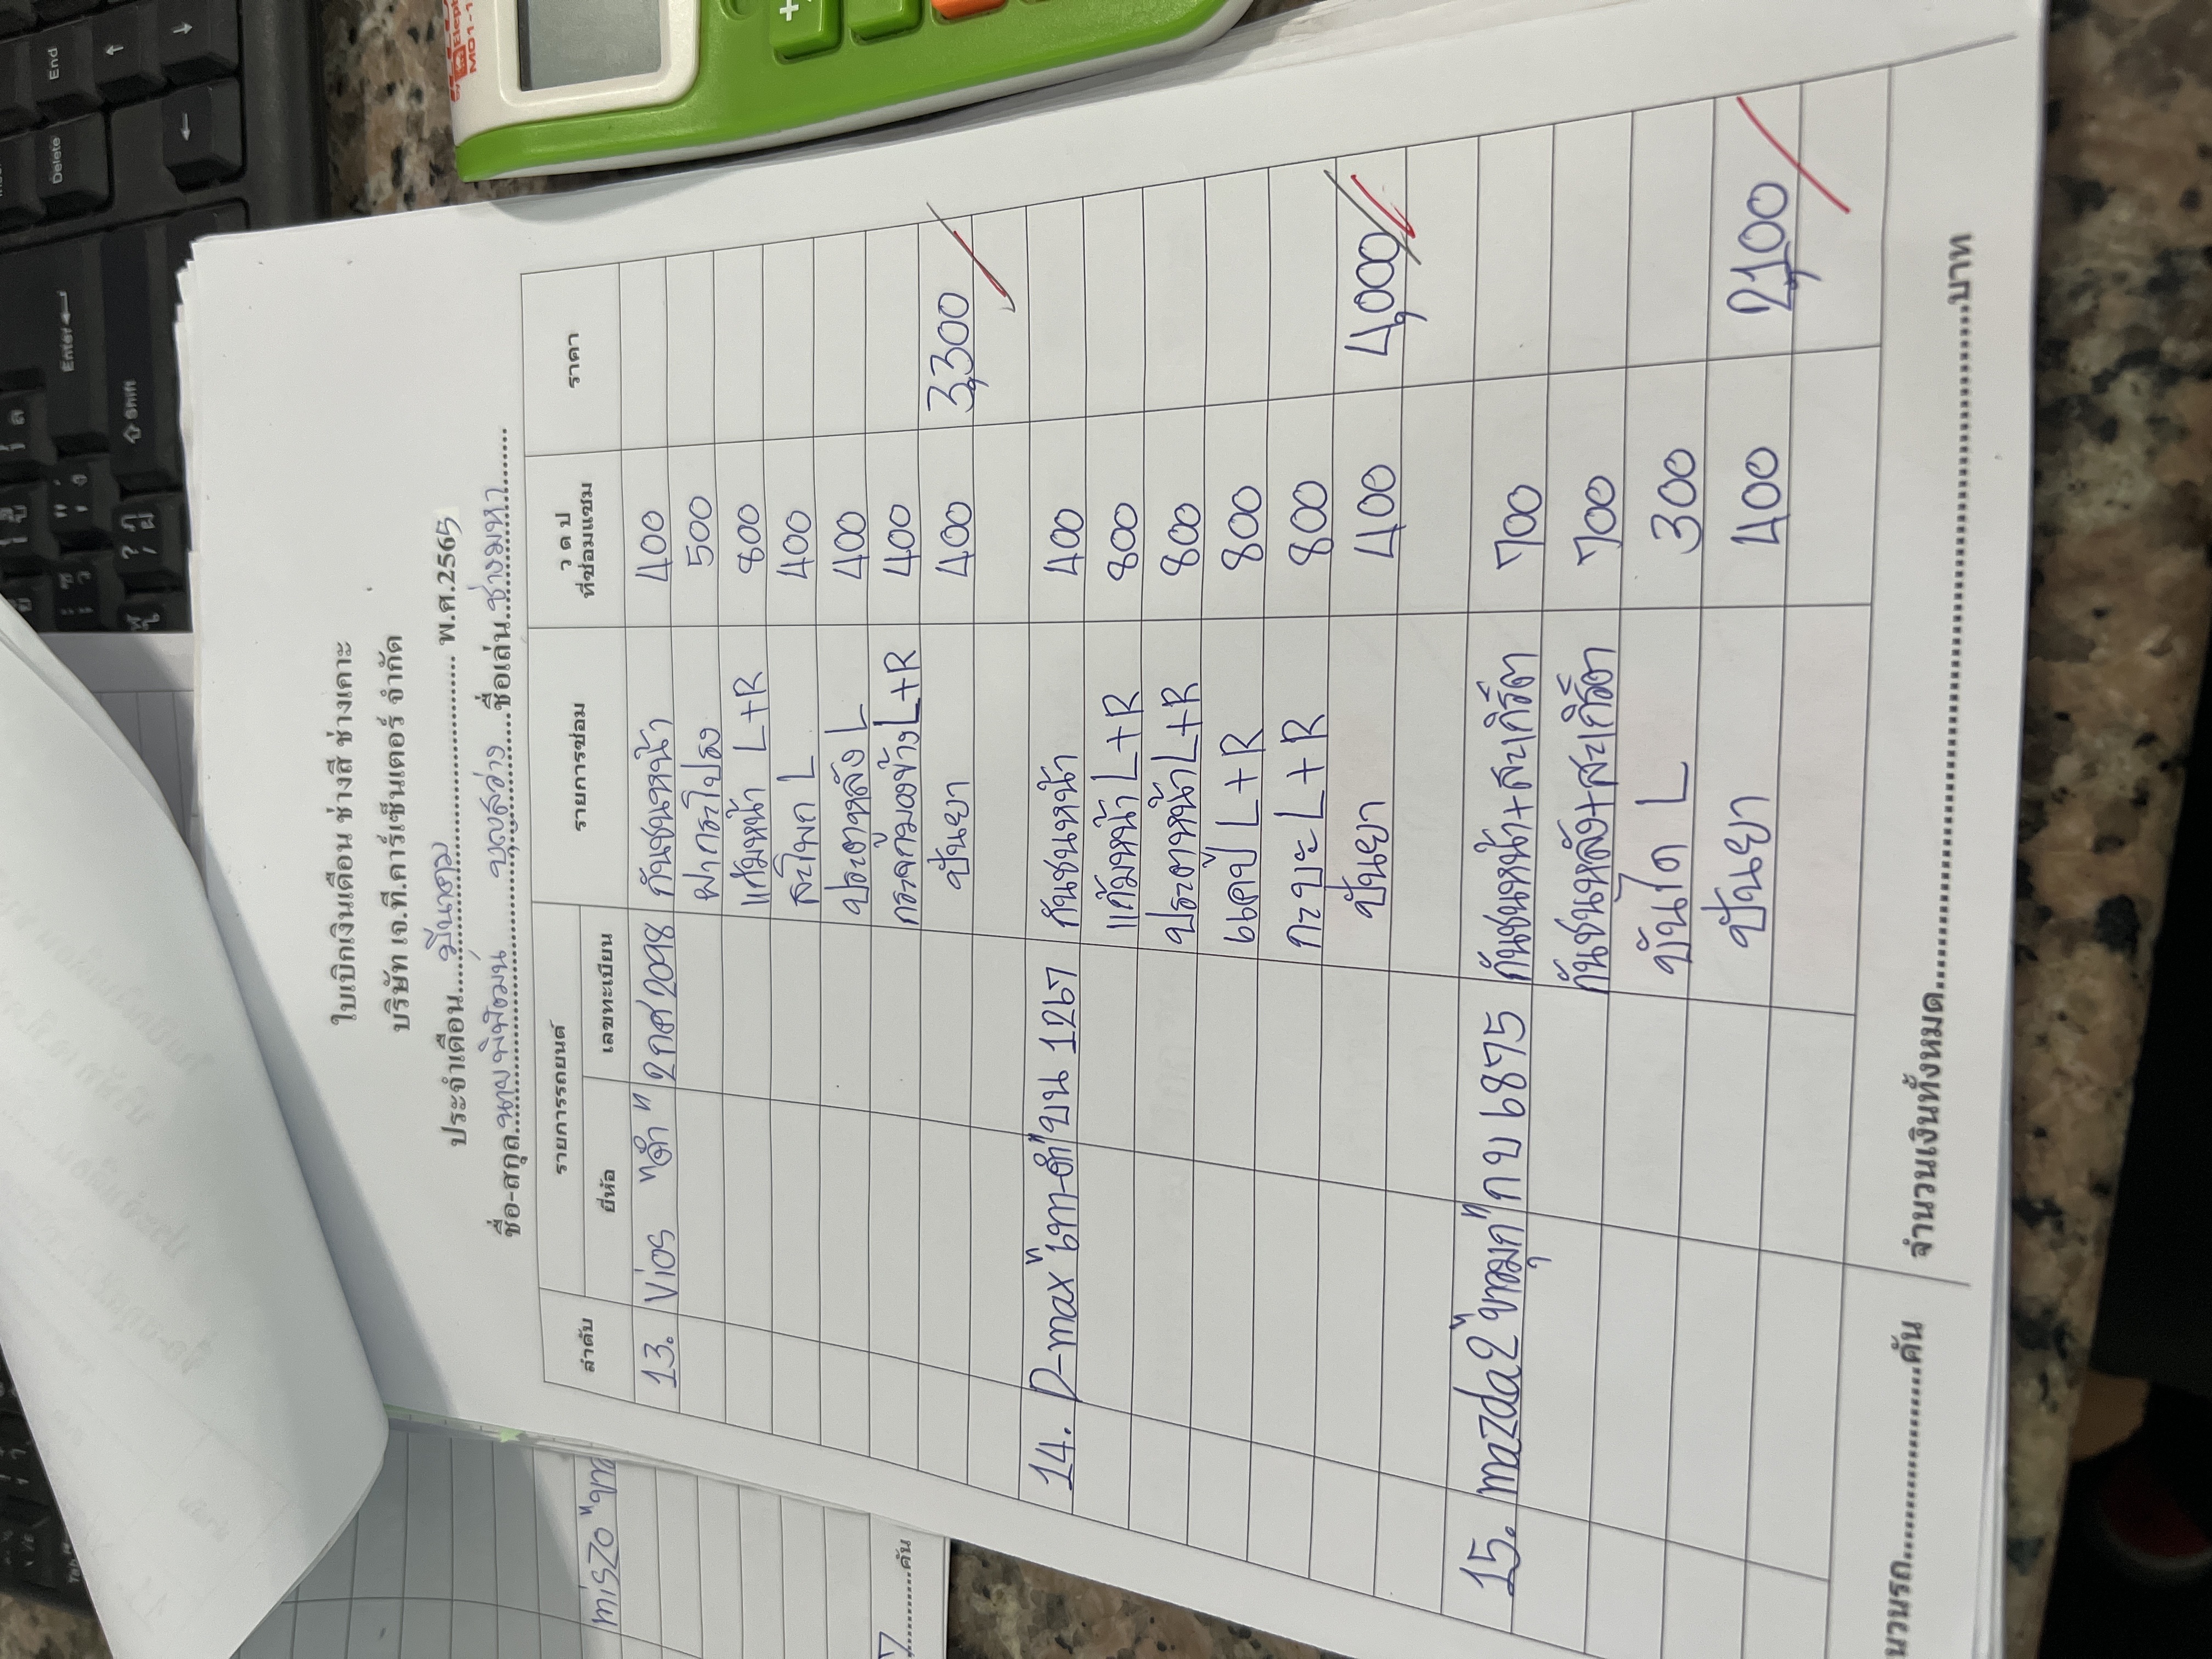 ใบเบิกเงินเดือน ช่างสี ช่างเคาะ
บริษัท เจ.ที.คาร์เซ็นเตอร์ จำกัด
ประจำเดือน....มีนาคม.... พ.ศ.2565
ชื่อ-สกุล..นาย พิพัฒน์ บุญสว่าง...ชื่อเล่น..ช่างมหา......
ลำดับ รายการรถยนต์ รายการซ่อม ว ด ป ที่ซ่อมแซม ราคา
ยี่ห้อ เลขทะเบียน
13. Vios "ดำ" 2 กศ 2098 กันชนหน้า 400
ฝากระโปรง 500
แก้มหน้า L+R 800
สเกิ๊ต L 400
ประตูหลัง L 400
กระจกมองข้าง L+R 400
ปั่นยา 400 3,300
14. D-max "เทา-ดำ" บน 1267 กันชนหน้า 400
แก้มหน้า L+R 800
ประตูหน้า L+R 800
แคป L+R 800
กะบะ L+R 800
ปั่นยา 400 4,000
15. mazda2 "ขาวมุก" กบ 6875 กันชนหน้า+สะเกิ๊ต 700
กันชนหลัง+สะเกิ๊ต 700
บันได L 300
ปั่นยา 400 2,100
นวนรถ....................คัน จำนวนเงินทั้งหมด....................บาท
Enter
Shift
Delete
End